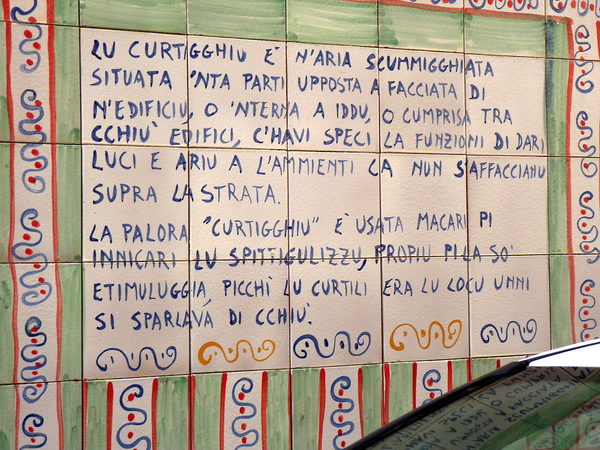 LU CURTIGGHIU E' N'ARIA SCUMMIGGHIATA
SITUATA 'NTA PARTI UPPOSTA A FACCIATA DI
N'EDIFICIU, O 'NTERNA A IDDU, O CUMPRISA TRA
CCHIÙ EDIFICI, C'HAVI SPECI LA FUNZIONI DI DARI
LUCI E ARIU A L'AMMIENTI CA NUN S'AFFACCIANU
SUPRA LA STRATA.
LA PALORA "CURTIGGHIU" E' USATA MACARI PI
INNICARI LU SPITTIGULIZZU, PROPIU PI LA SO'
ETIMULUGGIA, PICCHÌ LU CURTILI ERA LU LOCU UNNI
SI SPARLAVA DI CCHIÙ.